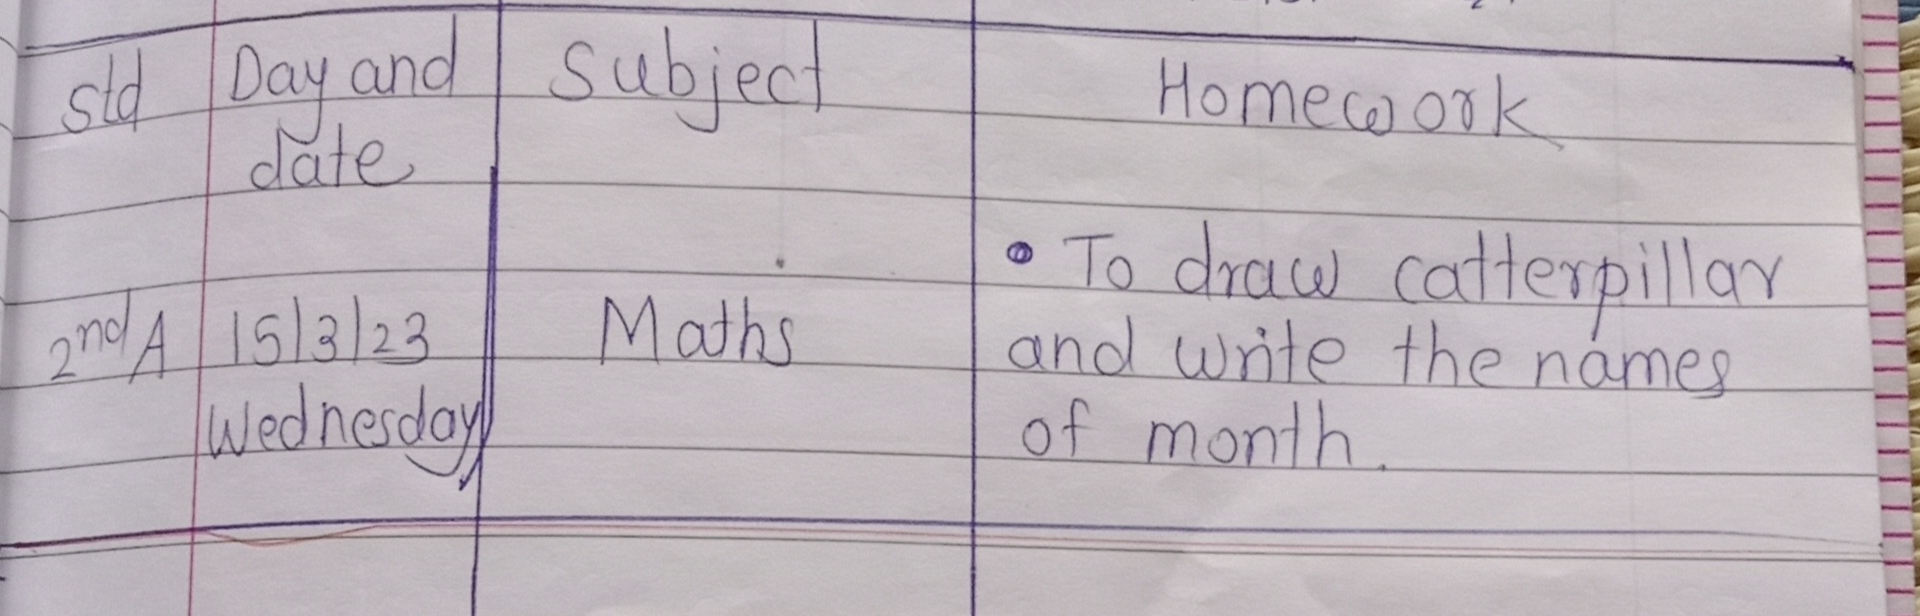 Std Day and date Subject Homework
2nd A 15/3/23 Wednesday Maths • To draw catterpillar
and write the names
of month.